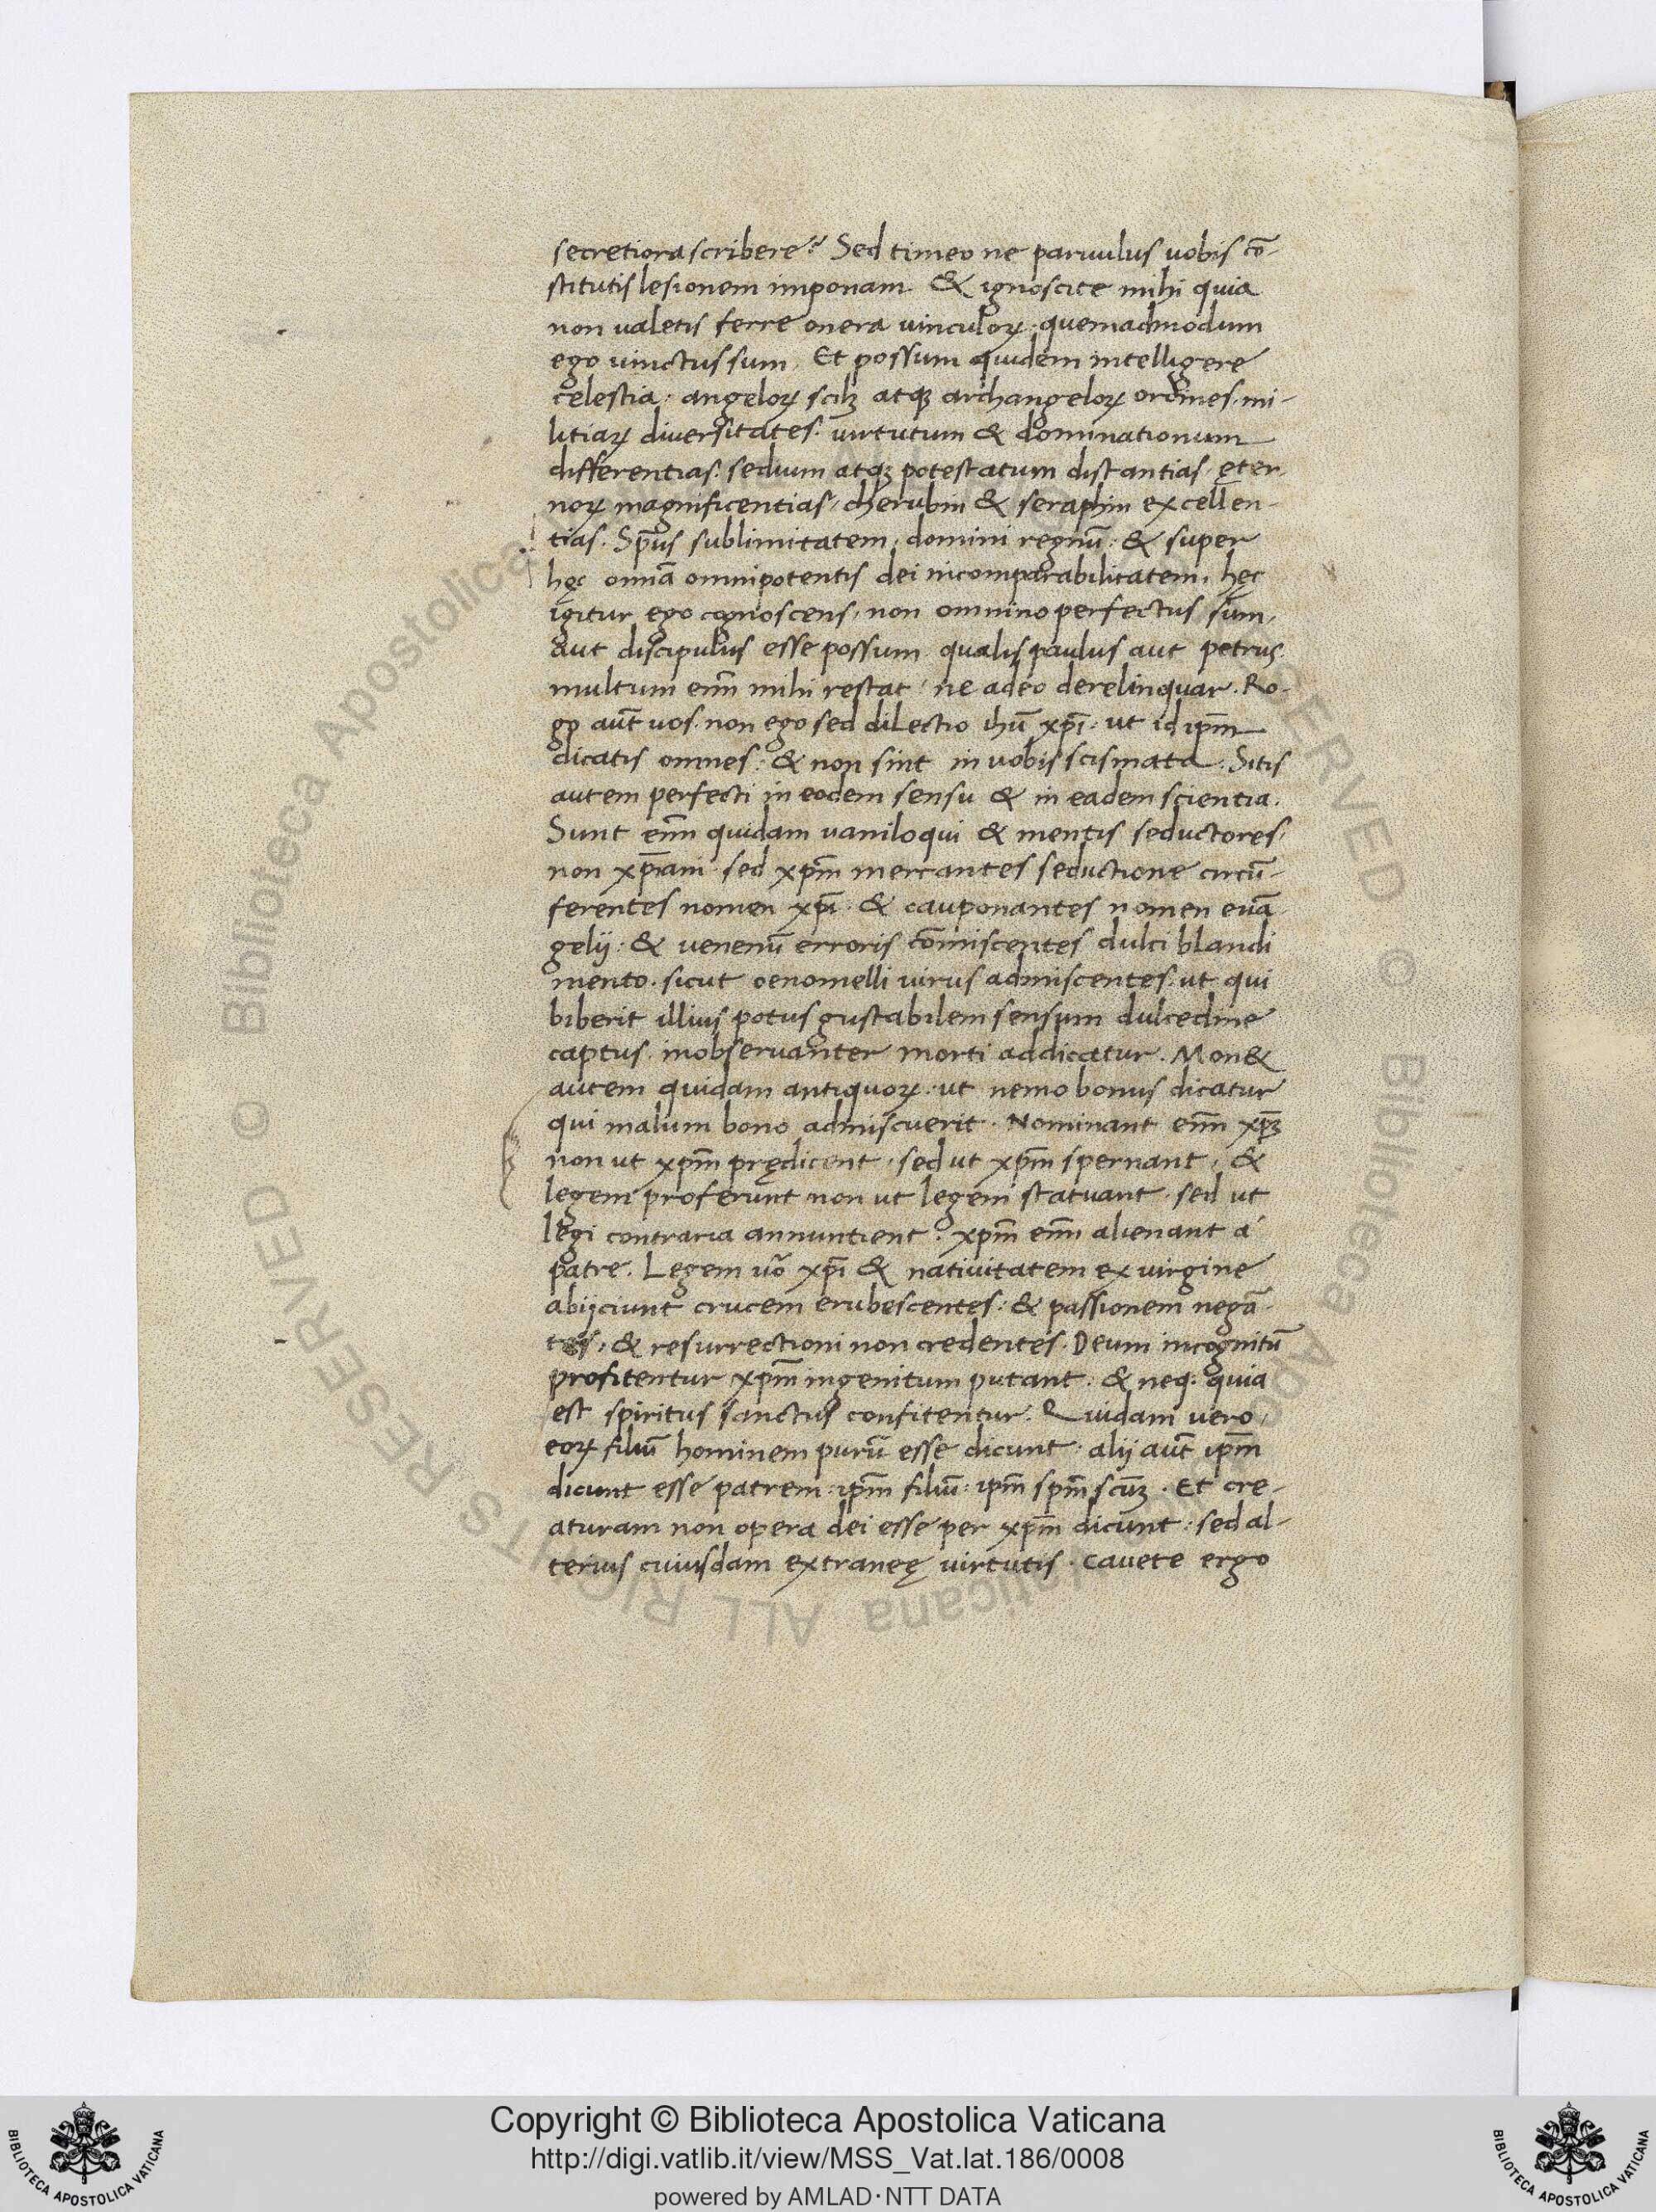 secretiora scribere? Sed timeo ne paruulus uobis cō-
stitutis lesionem imponam. & ignoscite mihi quia
non ualetis ferre onera uinculoꝝ. quemadmodum
ego uinctus sum. Et possum quidem intelligere
celestia: angeloꝝ scilꝫ atqꝫ archangeloꝝ ordines. mi-
litiaꝝ diuersitates. uirtutum & dominationum
differentias. sedium atqꝫ potestatum distantias. ęter-
noꝝ magnificentias, cherubin & seraphin excellen-
tias. Sp̄us sublimitatem, domini regnū: & super
hęc omīa omnipotentis dei incomparabilitatem. hęc
igitur ego cognoscens, non omnino perfectus sum,
aut discipulus esse possum. qualis paulus aut petrus.
multum enī̄ mihi restat: ne adeo derelinquar. Ro-
go aūt uos. non ego sed dilectio ihū xp̄i. ut id ip̄m
dicatis omnes: & non sint in uobis scismata. Sitis
autem perfecti in eodem sensu & in eadem scientia.
Sunt enī̄ quidam uaniloqui & mentis seductores,
non xp̄iani. sed xp̄m mercantes seductione circū-
ferentes nomen xp̄i. & cauponantes nomen euā-
gelij: & uenenū erroris cōmiscentes dulci blandi
mento. sicut oenomelli uirus admiscentes. ut qui
biberit illius potus gustabilem sensum dulcedine
captus. inobseruanter morti addicatur. Mon&
autem quidam antiquoꝝ. ut nemo bonus dicatur
qui malum bono admiscuerit. Nominant enī̄ xp̄ꝫ
non ut xp̄m prędicent, sed ut xp̄m spernant, &
legem proferunt non ut legem statuant. sed ut
legi contraria annuntient? xp̄m enī̄ alienant á
patre. Legem uō xp̄i & natiuitatem ex uirgine
abijciunt crucem erubescentes: & passionem negā-
tes, & resurrectioni non credentes. Deum incognitū
profitentur xp̄m ingenitum putant. & neq. quia
est spiritus sanctus confitentur. Quidam uero,
eoꝝ filiū hominem purū esse dicunt: alij aūt ip̄m
dicunt esse patrem: ip̄m filiū: ip̄m sp̄m sc̄ūꝫ. Et cre-
aturam non opera dei esse per xp̄m dicunt: sed al-
terius cuiusdam extraneę uirtutis. Cauete ergo
© Biblioteca Apostolica Vaticana ALL RIGHTS RESERVED
Copyright © Biblioteca Apostolica Vaticana
http://digi.vatlib.it/view/MSS_Vat.lat.186/0008
powered by AMLAD·NTT DATA
BIBLIOTECA APOSTOLICA VATICANA
BIBLIOTECA APOSTOLICA VATICANA